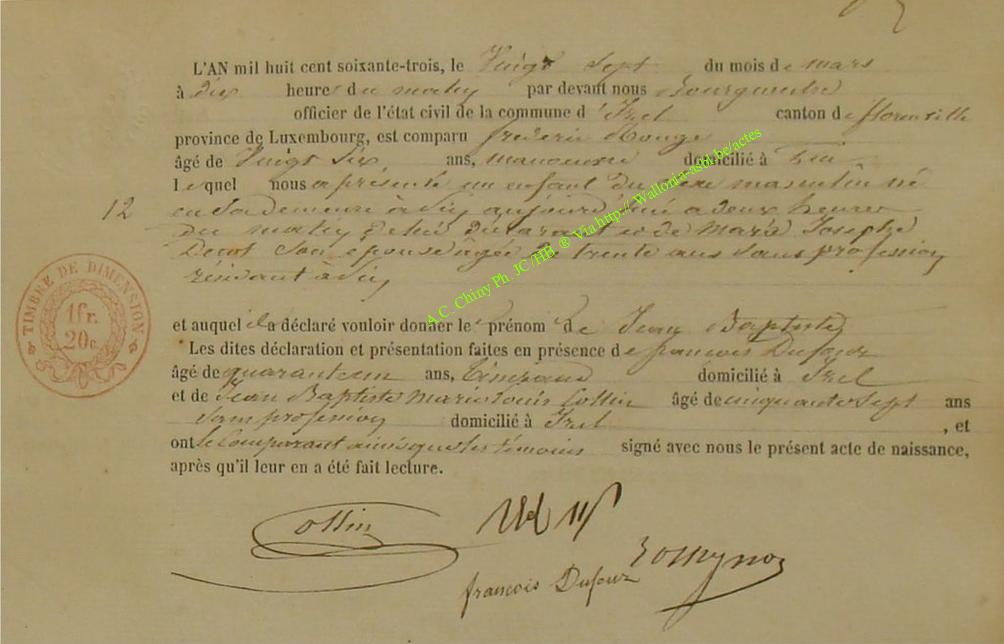 L'AN mil huit cent soixante-trois, le Vingt Sept du mois de mars
à dix heures du matin par devant nous Bourgmestre
officier de l'état civil de la commune d'Izel canton de florenville
province de Luxembourg, est comparu frederic
âgé de Vingt Six ans, manoeuvre domicilié à
Lequel nous a présenté un enfant du sexe masculin né
12
en sa demeure à aujourd'hui a deux heures
du matin de lui déclarant et de Marie Josephe
Son épouse âgée de trente ans Sans profession
résidant a
et auquel il a déclaré vouloir donner le prénom de Jean Baptiste
Les dites déclaration et présentation faites en présence de françois Dufour
âgé de quarante un ans, domicilié à Izel
et de Jean Baptiste Marie Louis Collin âgé de cinquante Sept ans
Sans profession domicilié à Izel , et
ont le Comparant ainsi que les témoins signé avec nous le présent acte de naissance,
après qu'il leur en a été fait lecture.
TIMBRE DE DIMENSION
1 fr.
20 c.
A.C. Chiny Ph. JC/HB ® Via http://Wallonia-asbl.be/actes
Collin
françois Dufour